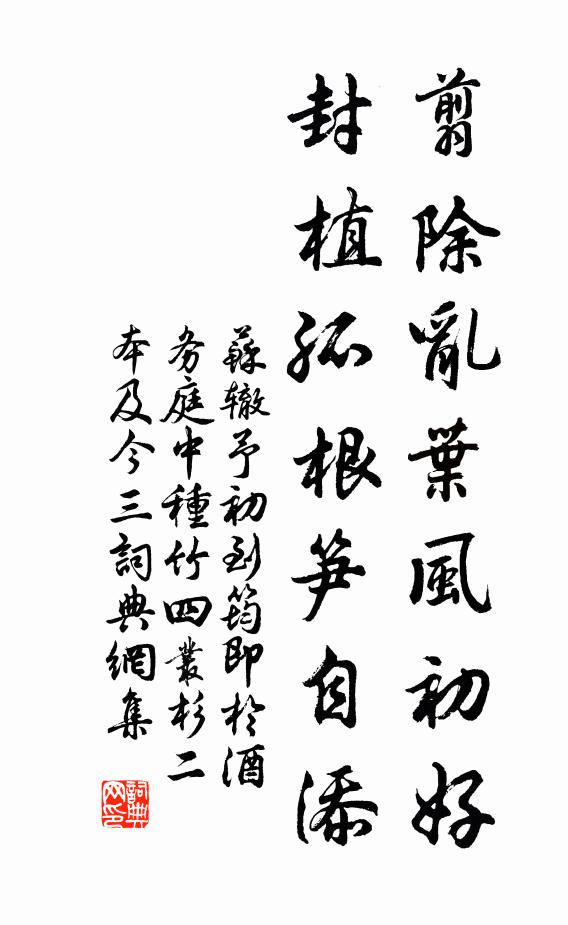 翦除亂葉風初好
封植孤根笋自添
蘇辙予初到筠即於酒
务庭中種竹四叢杉二
本及今三詞典網集
詞典网印